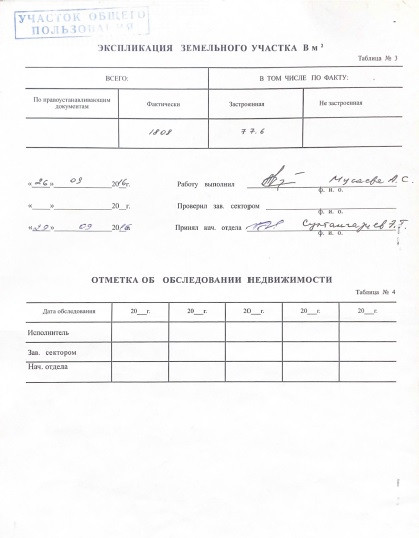 УЧАСТОК ОБЩЕГО
ПОЛЬЗОВАНИЯ
ЭКСПЛИКАЦИЯ ЗЕМЕЛЬНОГО УЧАСТКА В м²
Таблица № 3
ВСЕГО: В ТОМ ЧИСЛЕ ПО ФАКТУ:
По правоустанавливающим документам Фактически Застроенная Не застроенная
1808 77.6
«26» 09 2016г. Работу выполнил Мусаева А.С.
ф. и. о.
«___» ______ 20__г. Проверил зав. сектором
ф. и. о.
«29» 09 2016г. Принял нач. отдела
ф. и. о.
ОТМЕТКА ОБ ОБСЛЕДОВАНИИ НЕДВИЖИМОСТИ
Таблица № 4
Дата обследования 20__г. 20__г. 20__г. 20__г. 20__г.
Исполнитель
Зав. сектором
Нач. отдела